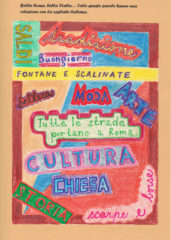 Bella Roma, bella Italia... Tutte queste parole hanno una relazione con la capitale italiana.
SALDI
tradizione
Buongiorno
FONTANE E SCALINATE
MODA
ARTE
Tutte le strade
portano a Roma.
CULTURA
CHIESA
STORIA
scarpe e borse